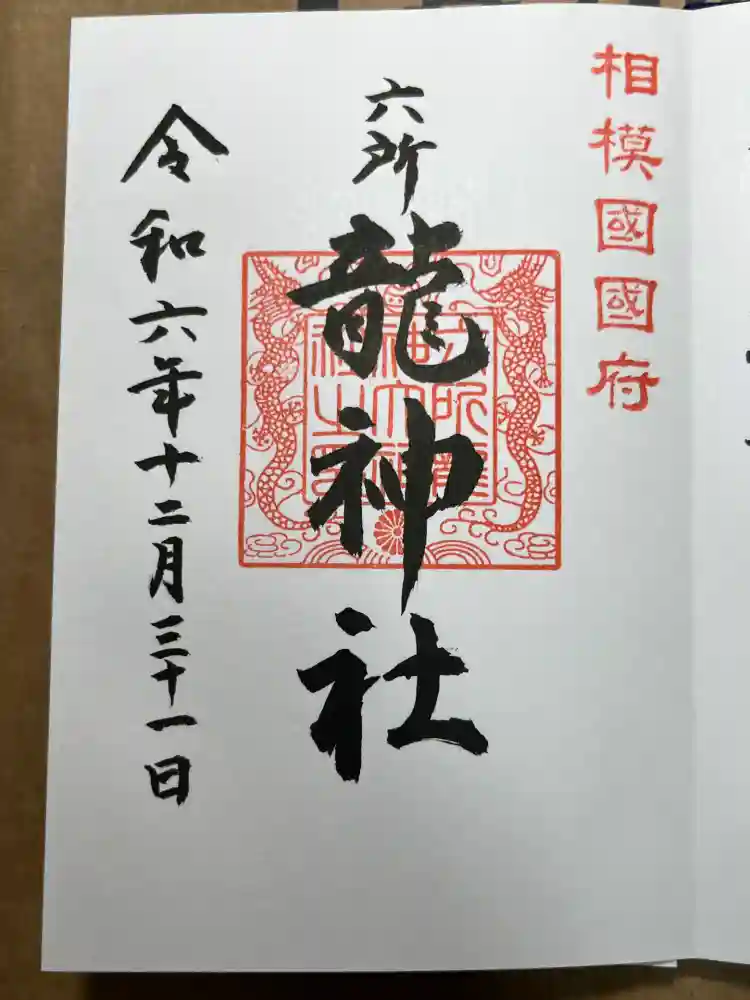 相模國國府
六所
龍神社
令和六年十二月三十一日